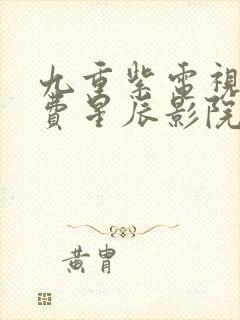 九重紫電視
費星辰影院
黃胄